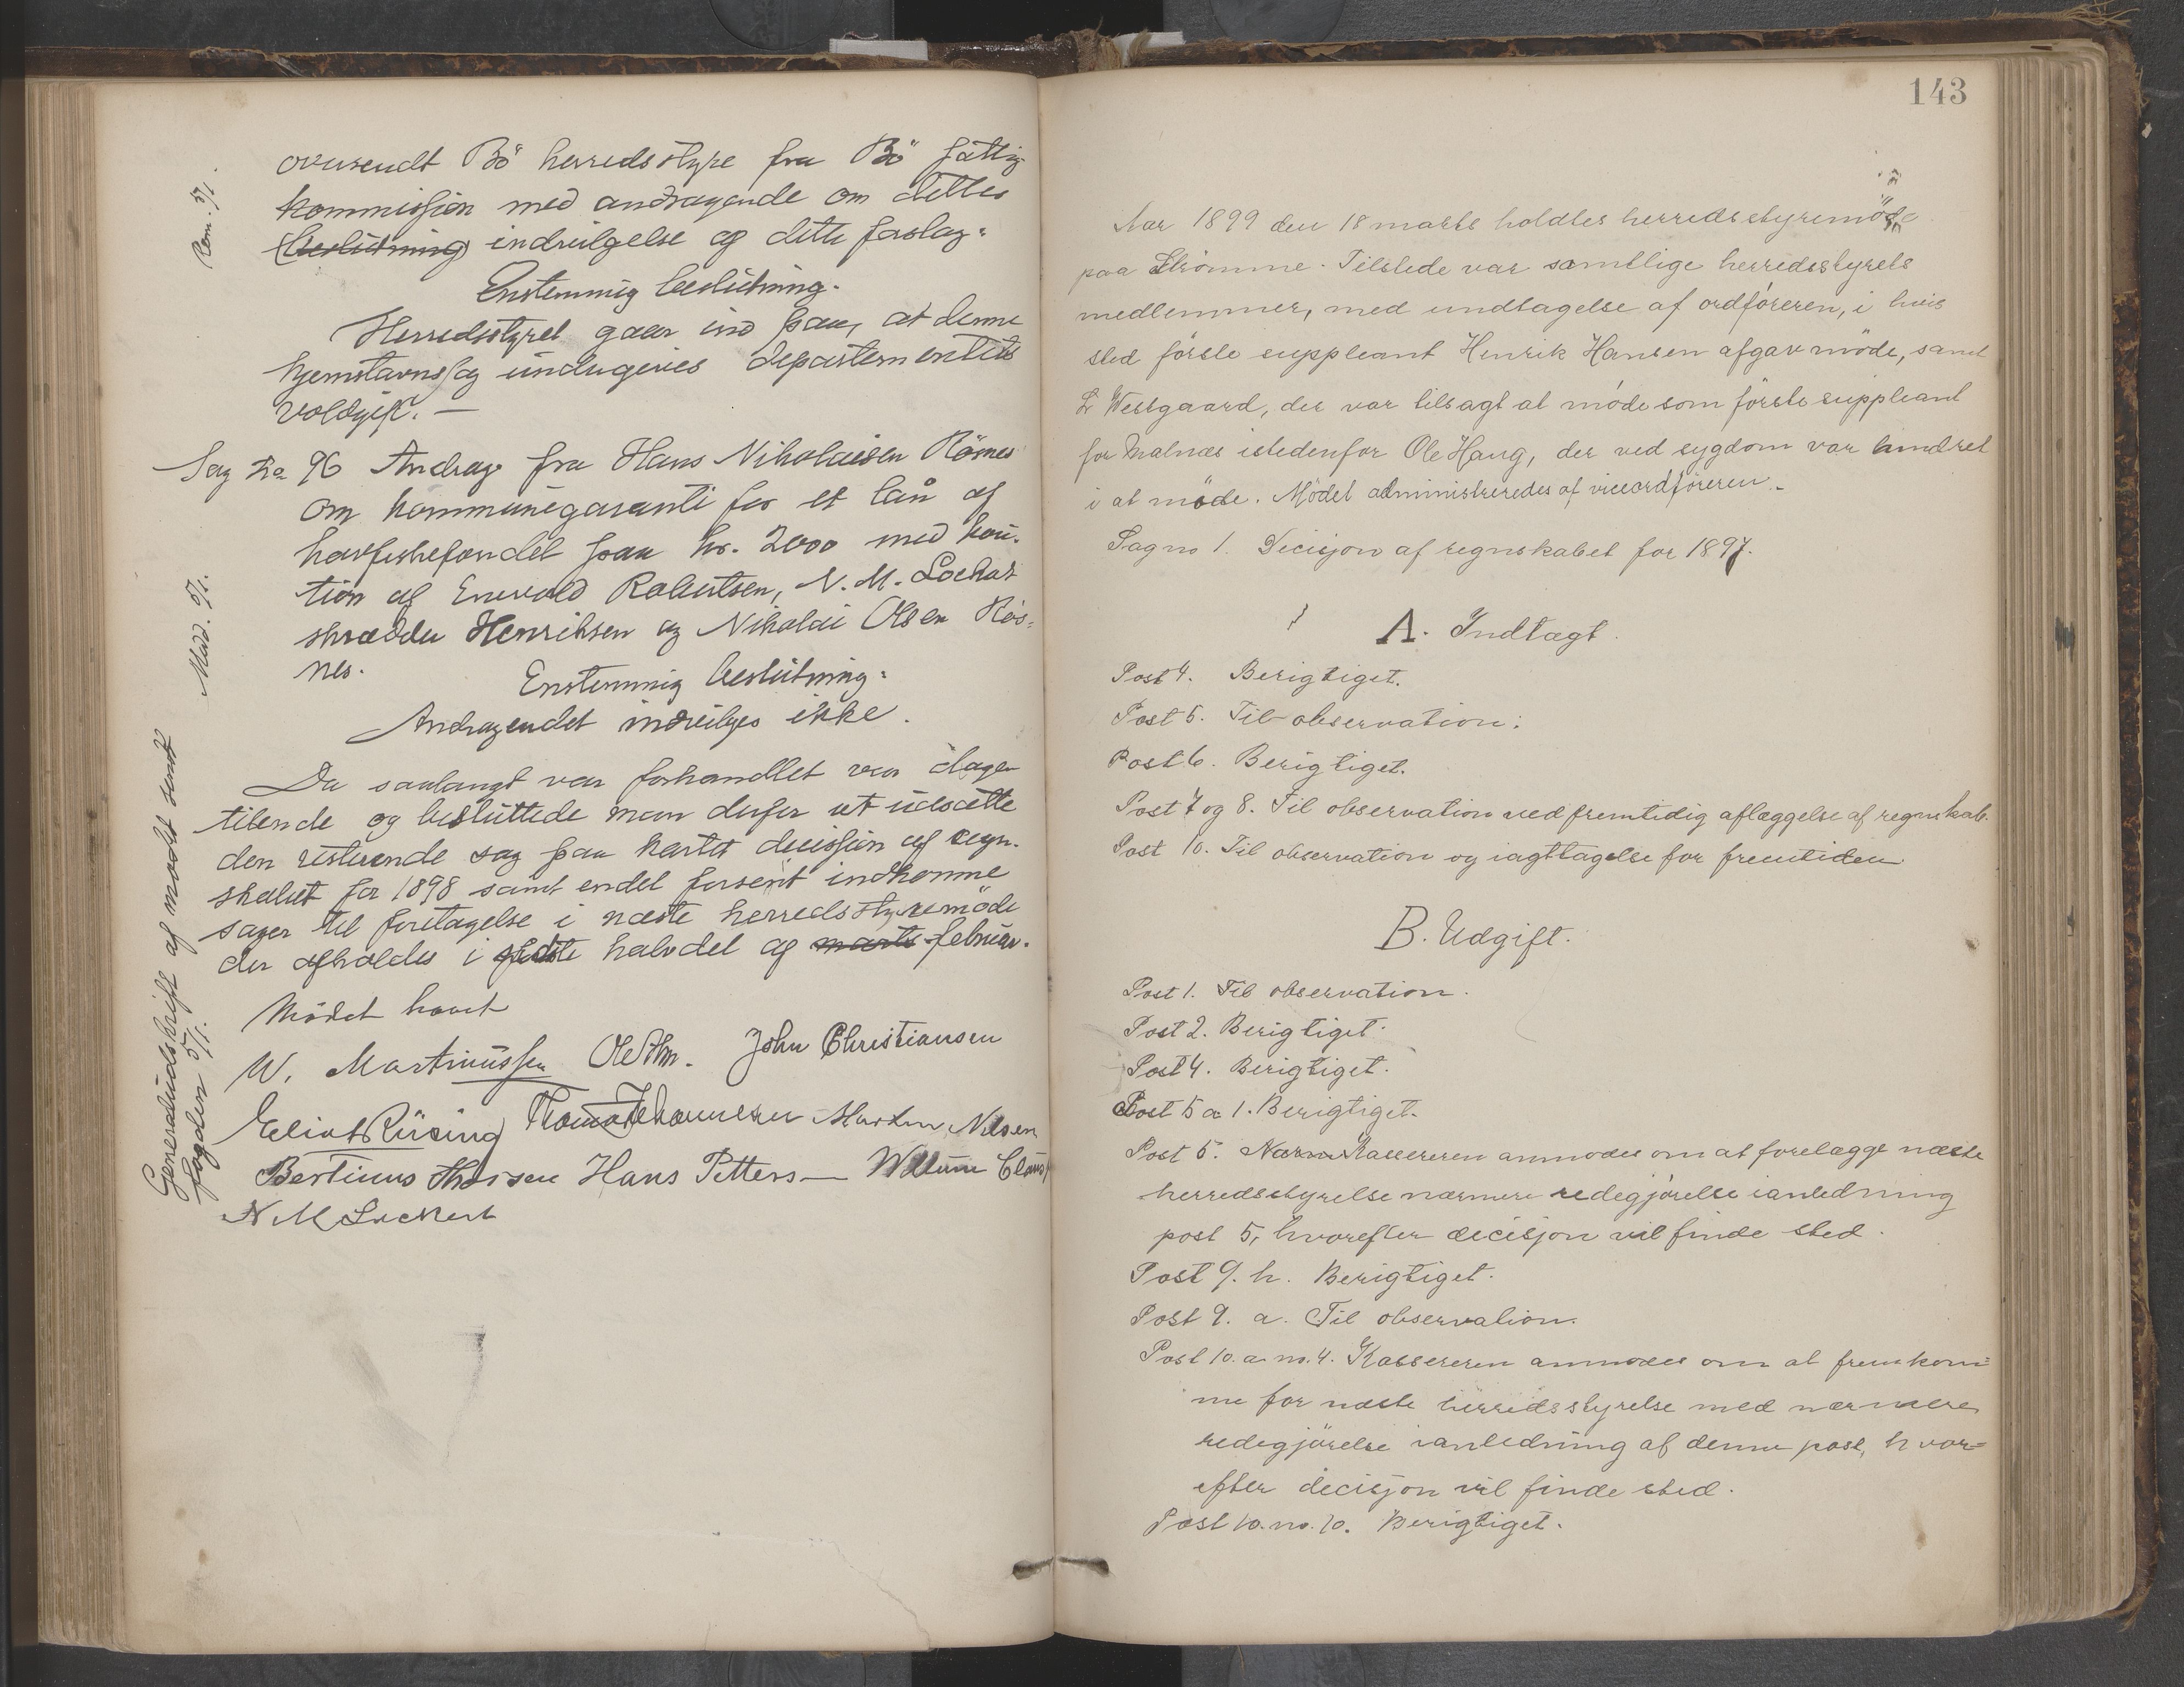 oversendt Bö herredsstyre fra Bö fattig
kommission med andragende om dettes
(beslutning) indvilgelse og dette forslag:
Enstemmig beslutning:
Herredsstyret gaar ind paa, at denne
hjemstavnssag undergives departementets
voldgift. —
Sag No 96 Andrag fra Hans Nikolaisen
om kommunegaranti for et lån af
havfiskefondet paa kr. 2000 med kau-
tion af Enevold Robertsen, N. M. Lockert
skrædder Henriksen og Nikolai Olsen Rös-
nes.
Enstemmig beslutning:
Andragendet indvilges ikke.
Da saalangt var forhandlet var dagen
tilende og besluttede man derfor at udsætte
den resterende sag paa kartet decission af regn-
skabet for 1898 samt endel forsent indkomne
sager til foretagelse i næste herredsstyremöde
der afholdes i halvdel af marts februar.
Mödet hævet
W. Martinussen John Christiansen
Eliot Rüsing Thomas Johannesen Martin Nilsen
Bertinus Thorsen Hans Petters— Willum Claus
N M Lockert
Rem. 5/1.
Medd. 5/1.
Generaludskrift af mödet sendt
fogden 5/1.
143
Aar 1899 den 18 marts holdtes herredsstyremöde
paa Strömme. Tilstede var samtlige herredsstyrets
medlemmer, med undtagelse af ordföreren, i hvis
sted förste suppleant Henrik Hansen afgav möde, samt
L Westgaard, der var tilsagt at möde som förste suppleant
for Malnæs istedenfor Ole Haug, der ved sygdom var hindret
i at möde. Mödet administreredes af viceordföreren.
Sag no 1. Decisjon af regnskabet for 1897.
A. Indtægt.
Post 4. Berigtiget.
Post 5. Til observation.
Post 6. Berigtiget.
Post 7 og 8. Til observation ved fremtidig aflæggelse af regnskab.
Post 10. Til observation og iagttagelse for fremtiden
B. Udgift.
Post 1. Til observation.
Post 2. Berigtiget.
Post 4. Berigtiget.
Post 5 a 1. Berigtiget.
Post 5. Kassereren anmodes om at forelægge næste
herredsstyrelse nærmere redegjörelse ianledning
post 5, hvorefter decisjon vil finde sted.
Post 9. h. Berigtiget.
Post 9. a. Til observation.
Post 10. a. no. 4. Kassereren anmodes om at fremkom=
me for næste herredsstyrelse med nærmere
redegjörelse ianledning af denne post, hvor=
efter decisjon vil finde sted.
Post 10. no. 10. Berigtiget.